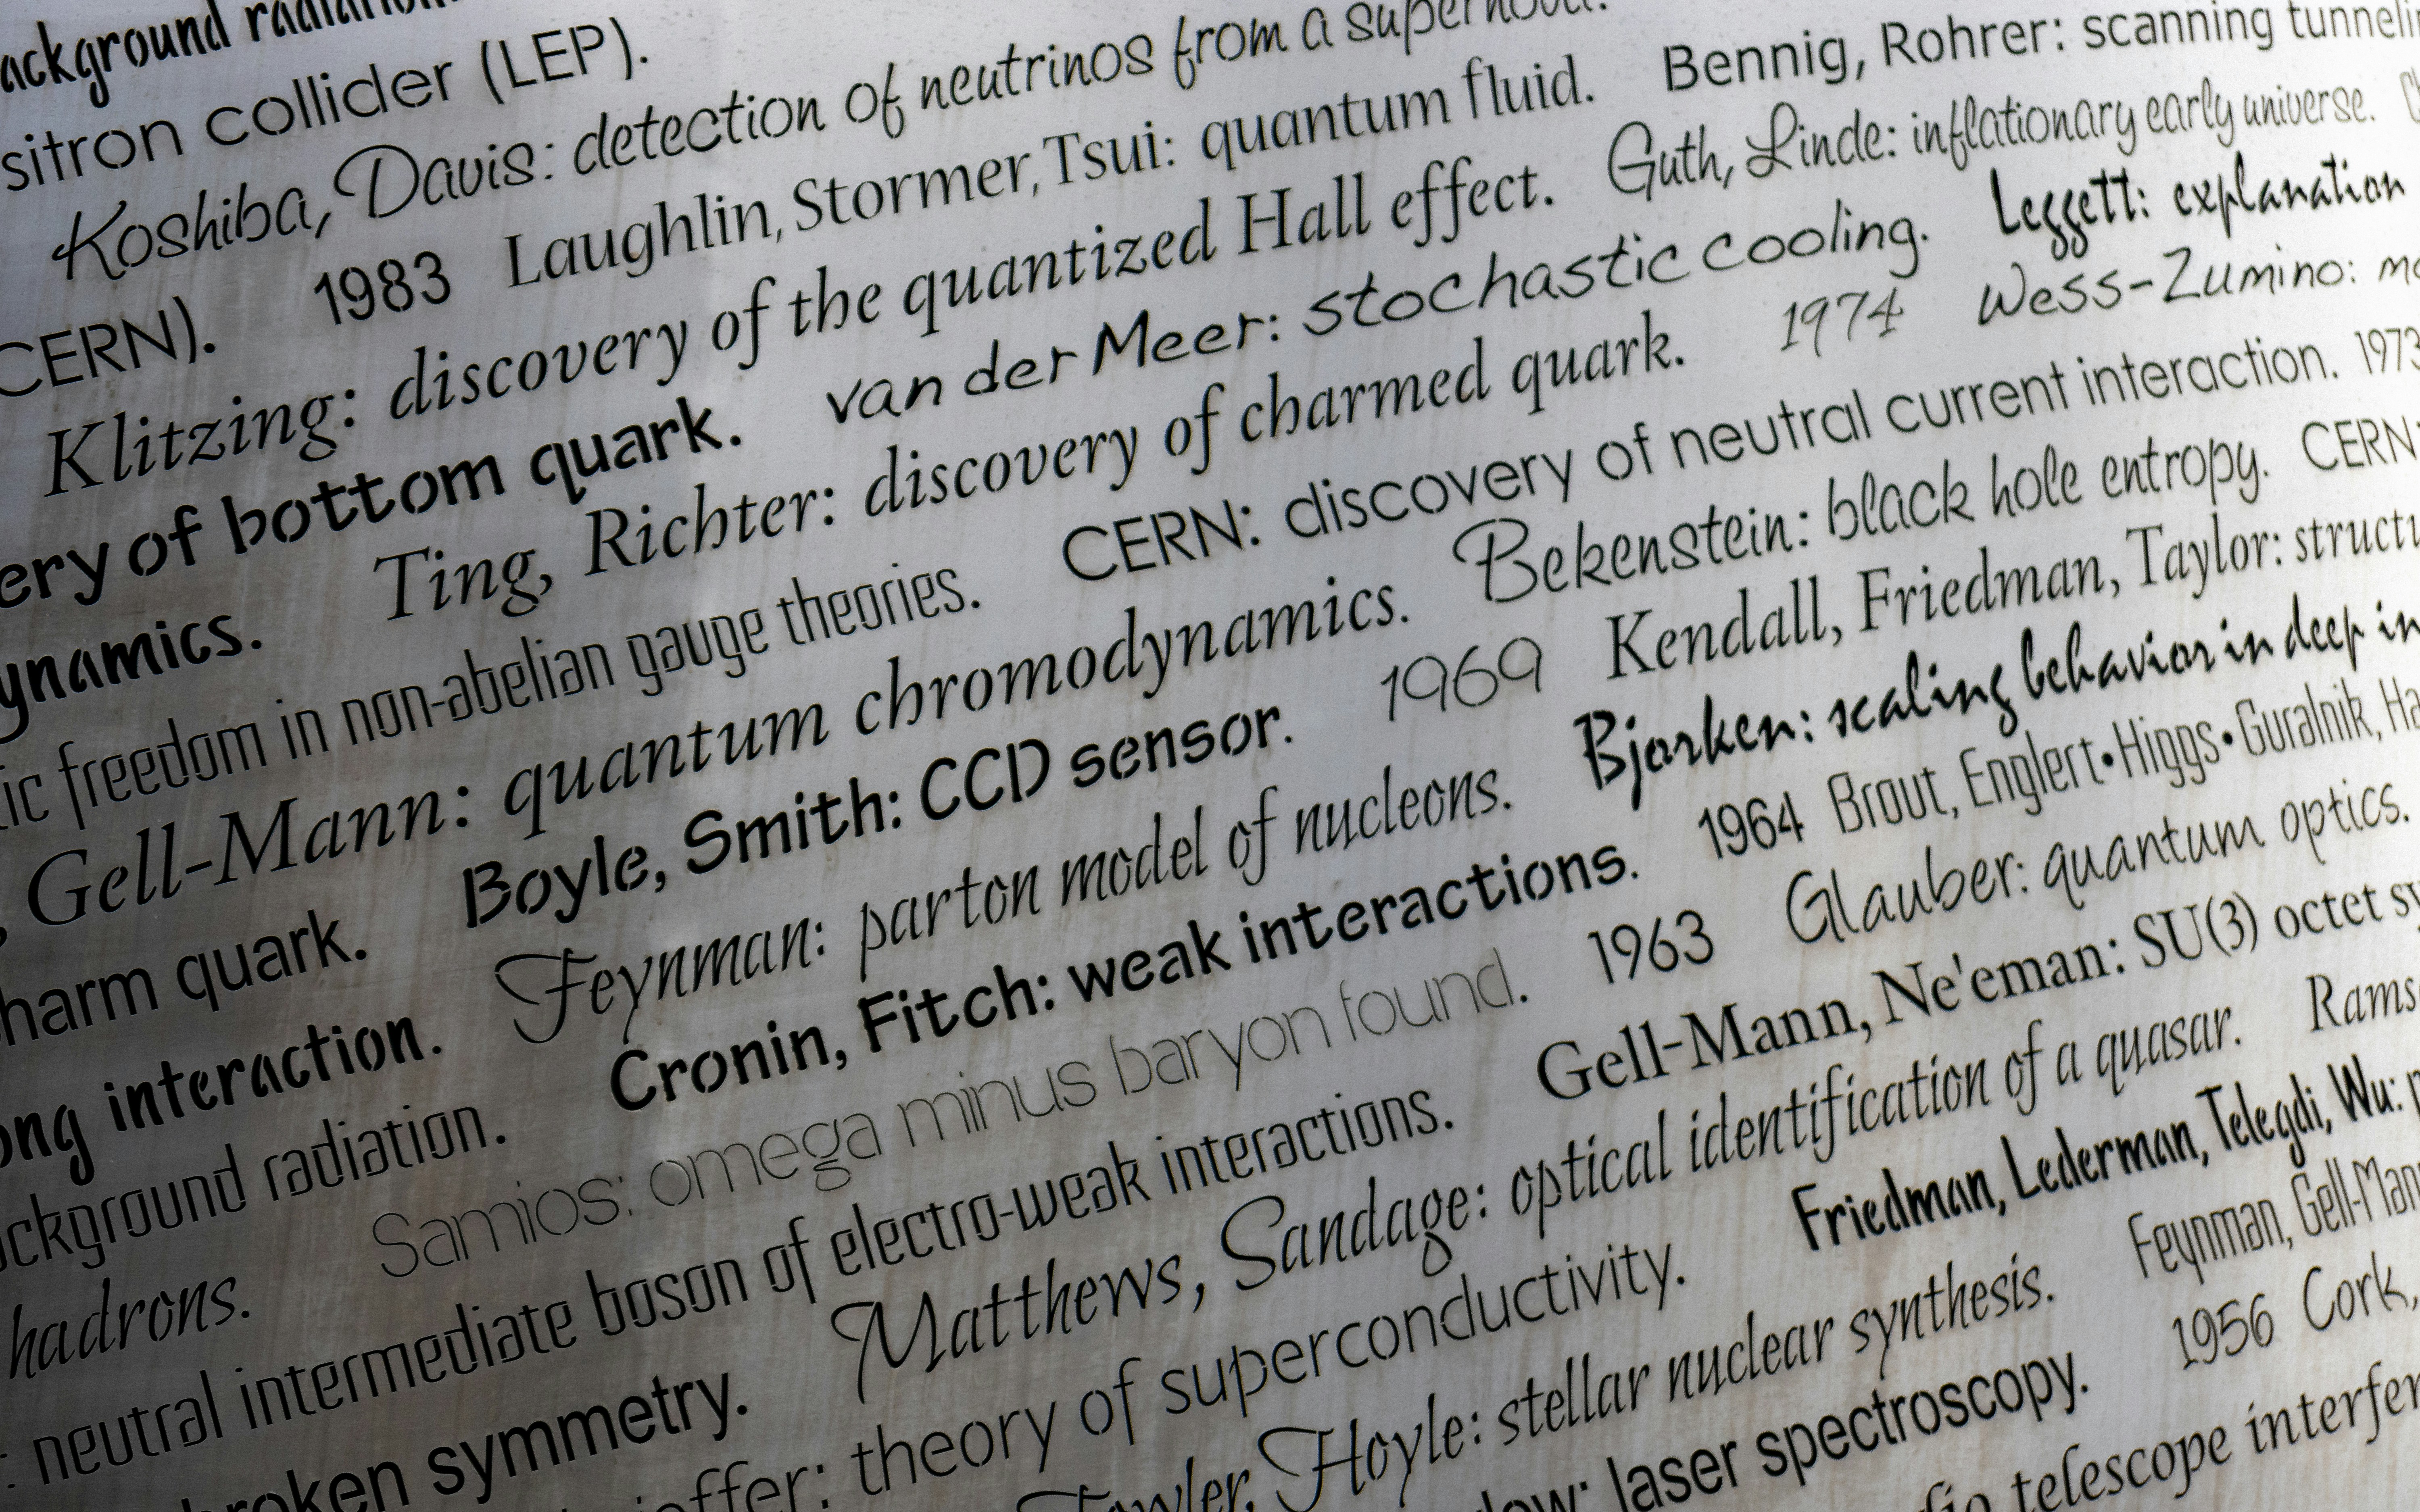 ackground radiation
sitron collider (LEP).
Koshiba, Davis: detection of neutrinos from a supernova.
CERN). 1983 Laughlin, Stormer, Tsui: quantum fluid. Bennig, Rohrer: scanning tunneli
Klitzing: discovery of the quantized Hall effect. Guth, Linde: inflationary early universe.
ery of bottom quark. van der Meer: stochastic cooling. Leggett: explanation
ynamics. Ting, Richter: discovery of charmed quark. 1974 Wess-Zumino: mo
ic freedom in non-abelian gauge theories. CERN: discovery of neutral current interaction. 1973
, Gell-Mann: quantum chromodynamics. Bekenstein: black hole entropy. CERN:
harm quark. Boyle, Smith: CCD sensor. 1969 Kendall, Friedman, Taylor: structu
ong interaction. Feynman: parton model of nucleons. Bjorken: scaling behavior in deep in
ckground radiation. Cronin, Fitch: weak interactions. 1964 Brout, Englert•Higgs•Guralnik, Ha
hadrons. Samios: omega minus baryon found. 1963 Glauber: quantum optics.
: neutral intermediate boson of electro-weak interactions. Gell-Mann, Ne'eman: SU(3) octet sy
broken symmetry. Matthews, Sandage: optical identification of a quasar. Rams
ieffer: theory of superconductivity. Friedman, Lederman, Telegdi, Wu: p
Fowler, Hoyle: stellar nuclear synthesis. Feynman, Gell-Mann
low: laser spectroscopy. 1956 Cork,
dio telescope interfer